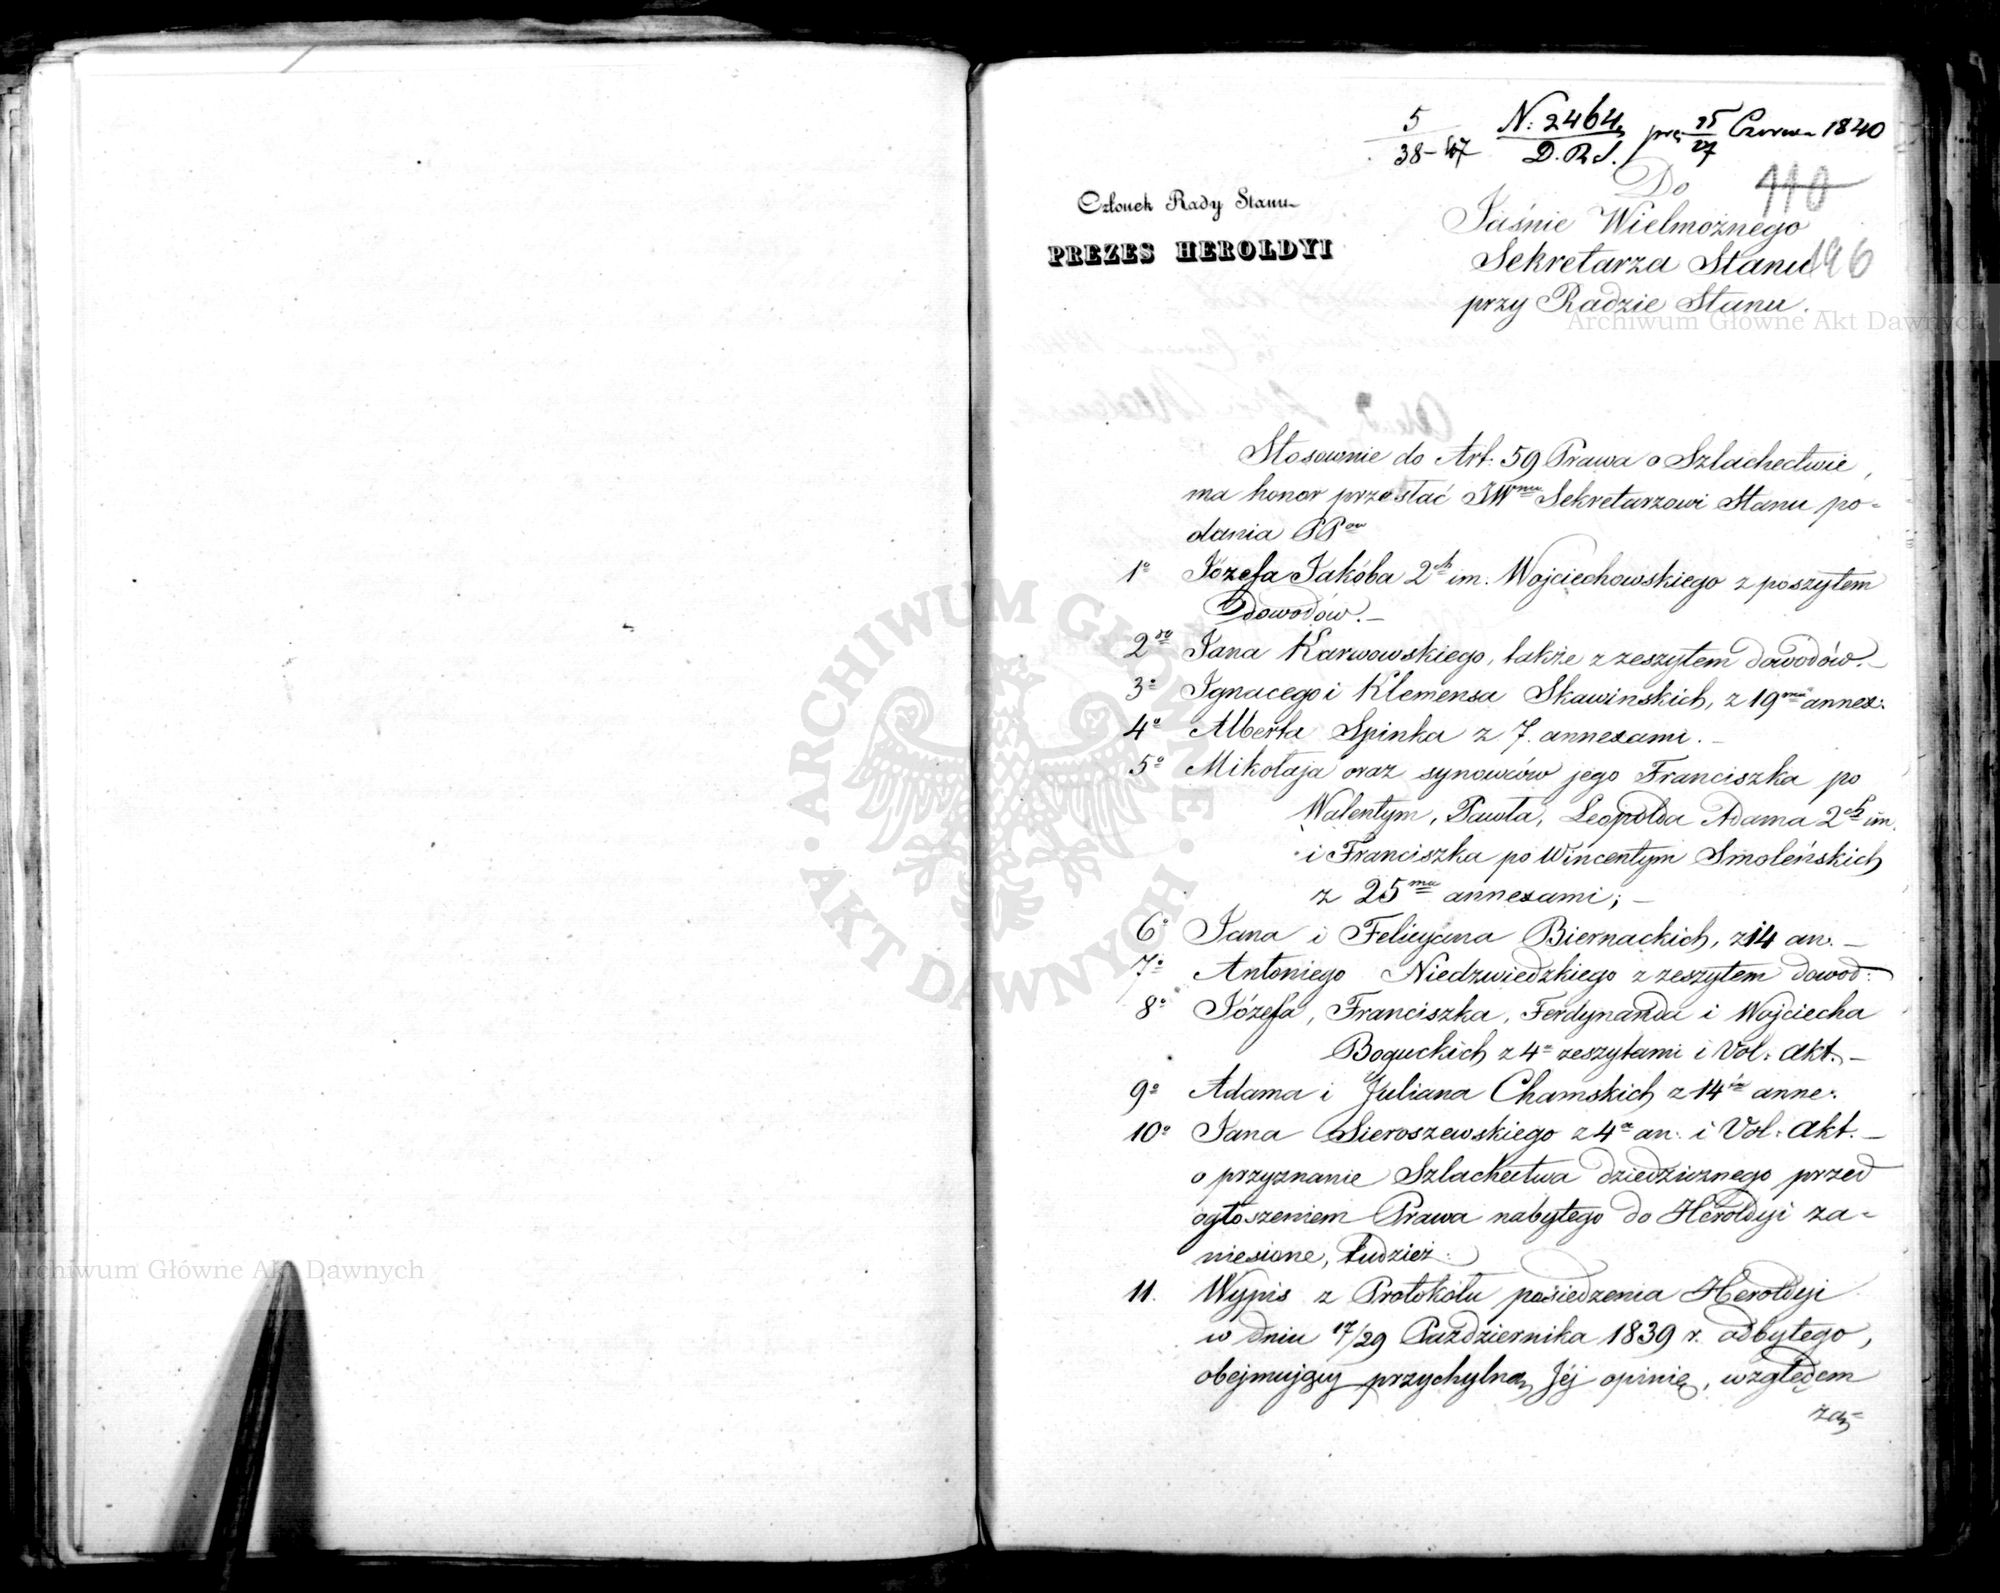 5
38–47
N: 2464
D. R. S.
prs 15/27 Czerwca 1840
110
Członek Rady Stanu
PREZES HEROLDYI
Do
Jaśnie Wielmożnego
Sekretarza Stanu
196
przy Radzie Stanu.
Archiwum Główne Akt Dawnych
Stosownie do Art: 59 Prawa o Szlachectwie,
ma honor przesłać JWmu Sekretarzowi Stanu po-
dania PPow
1o Józefa Jakóba 2ch im. Wojciechowskiego z poszytem
Dowodów.–
2do Jana Karwowskiego, także z zeszytem dowodów.–
3o Ignacego i Klemensa Skawińskich, z 19ma annex:
4o Alberta Spinka z 7. annexami.–
5o Mikołaja oraz synowców jego Franciszka po
Walentym, Pawła, Leopolda Adama 2ch im.
i Franciszka po Wincentym Smoleńskich
z 25ma annexami;–
6o Jana i Felicyana Biernackich, z 14 an.–
7o Antoniego Niedzwiedzkiego z zeszytem dowod:
8o Józefa, Franciszka, Ferdynanda i Wojciecha
Boguckich z 4a zeszytami i Vol: Akt.–
9o Adama i Juliana Chamskich z 14u anne:
10o Jana Sieroszewskiego z 4a an: i Vol: Akt.–
o przyznanie Szlachectwa dziedzicznego przed
ogłoszeniem Prawa nabytego do Heroldyi za-
niesione, tudzież:
11. Wypis z Protokółu posiedzenia Heroldyi
w dniu 17/29 Października 1839 r. odbytego,
obejmujący przychylną Jéj opinię, względem
za-
ARCHIWUM GŁÓWNE AKT DAWNYCH
Archiwum Główne Akt Dawnych